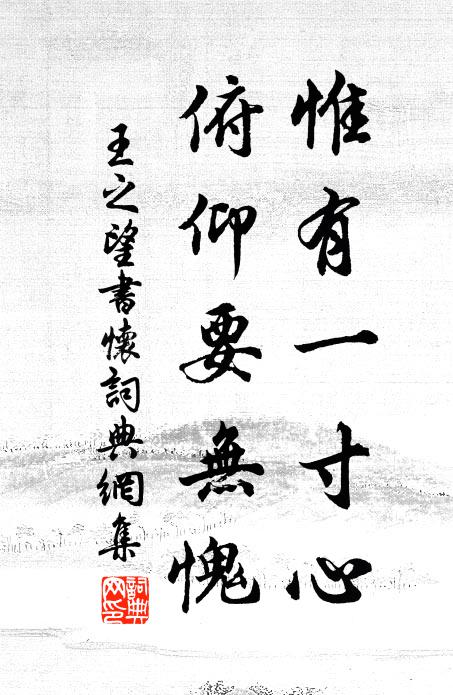 惟有一寸心
俯仰要無愧
王之望書懷詞典網集
詞典网印